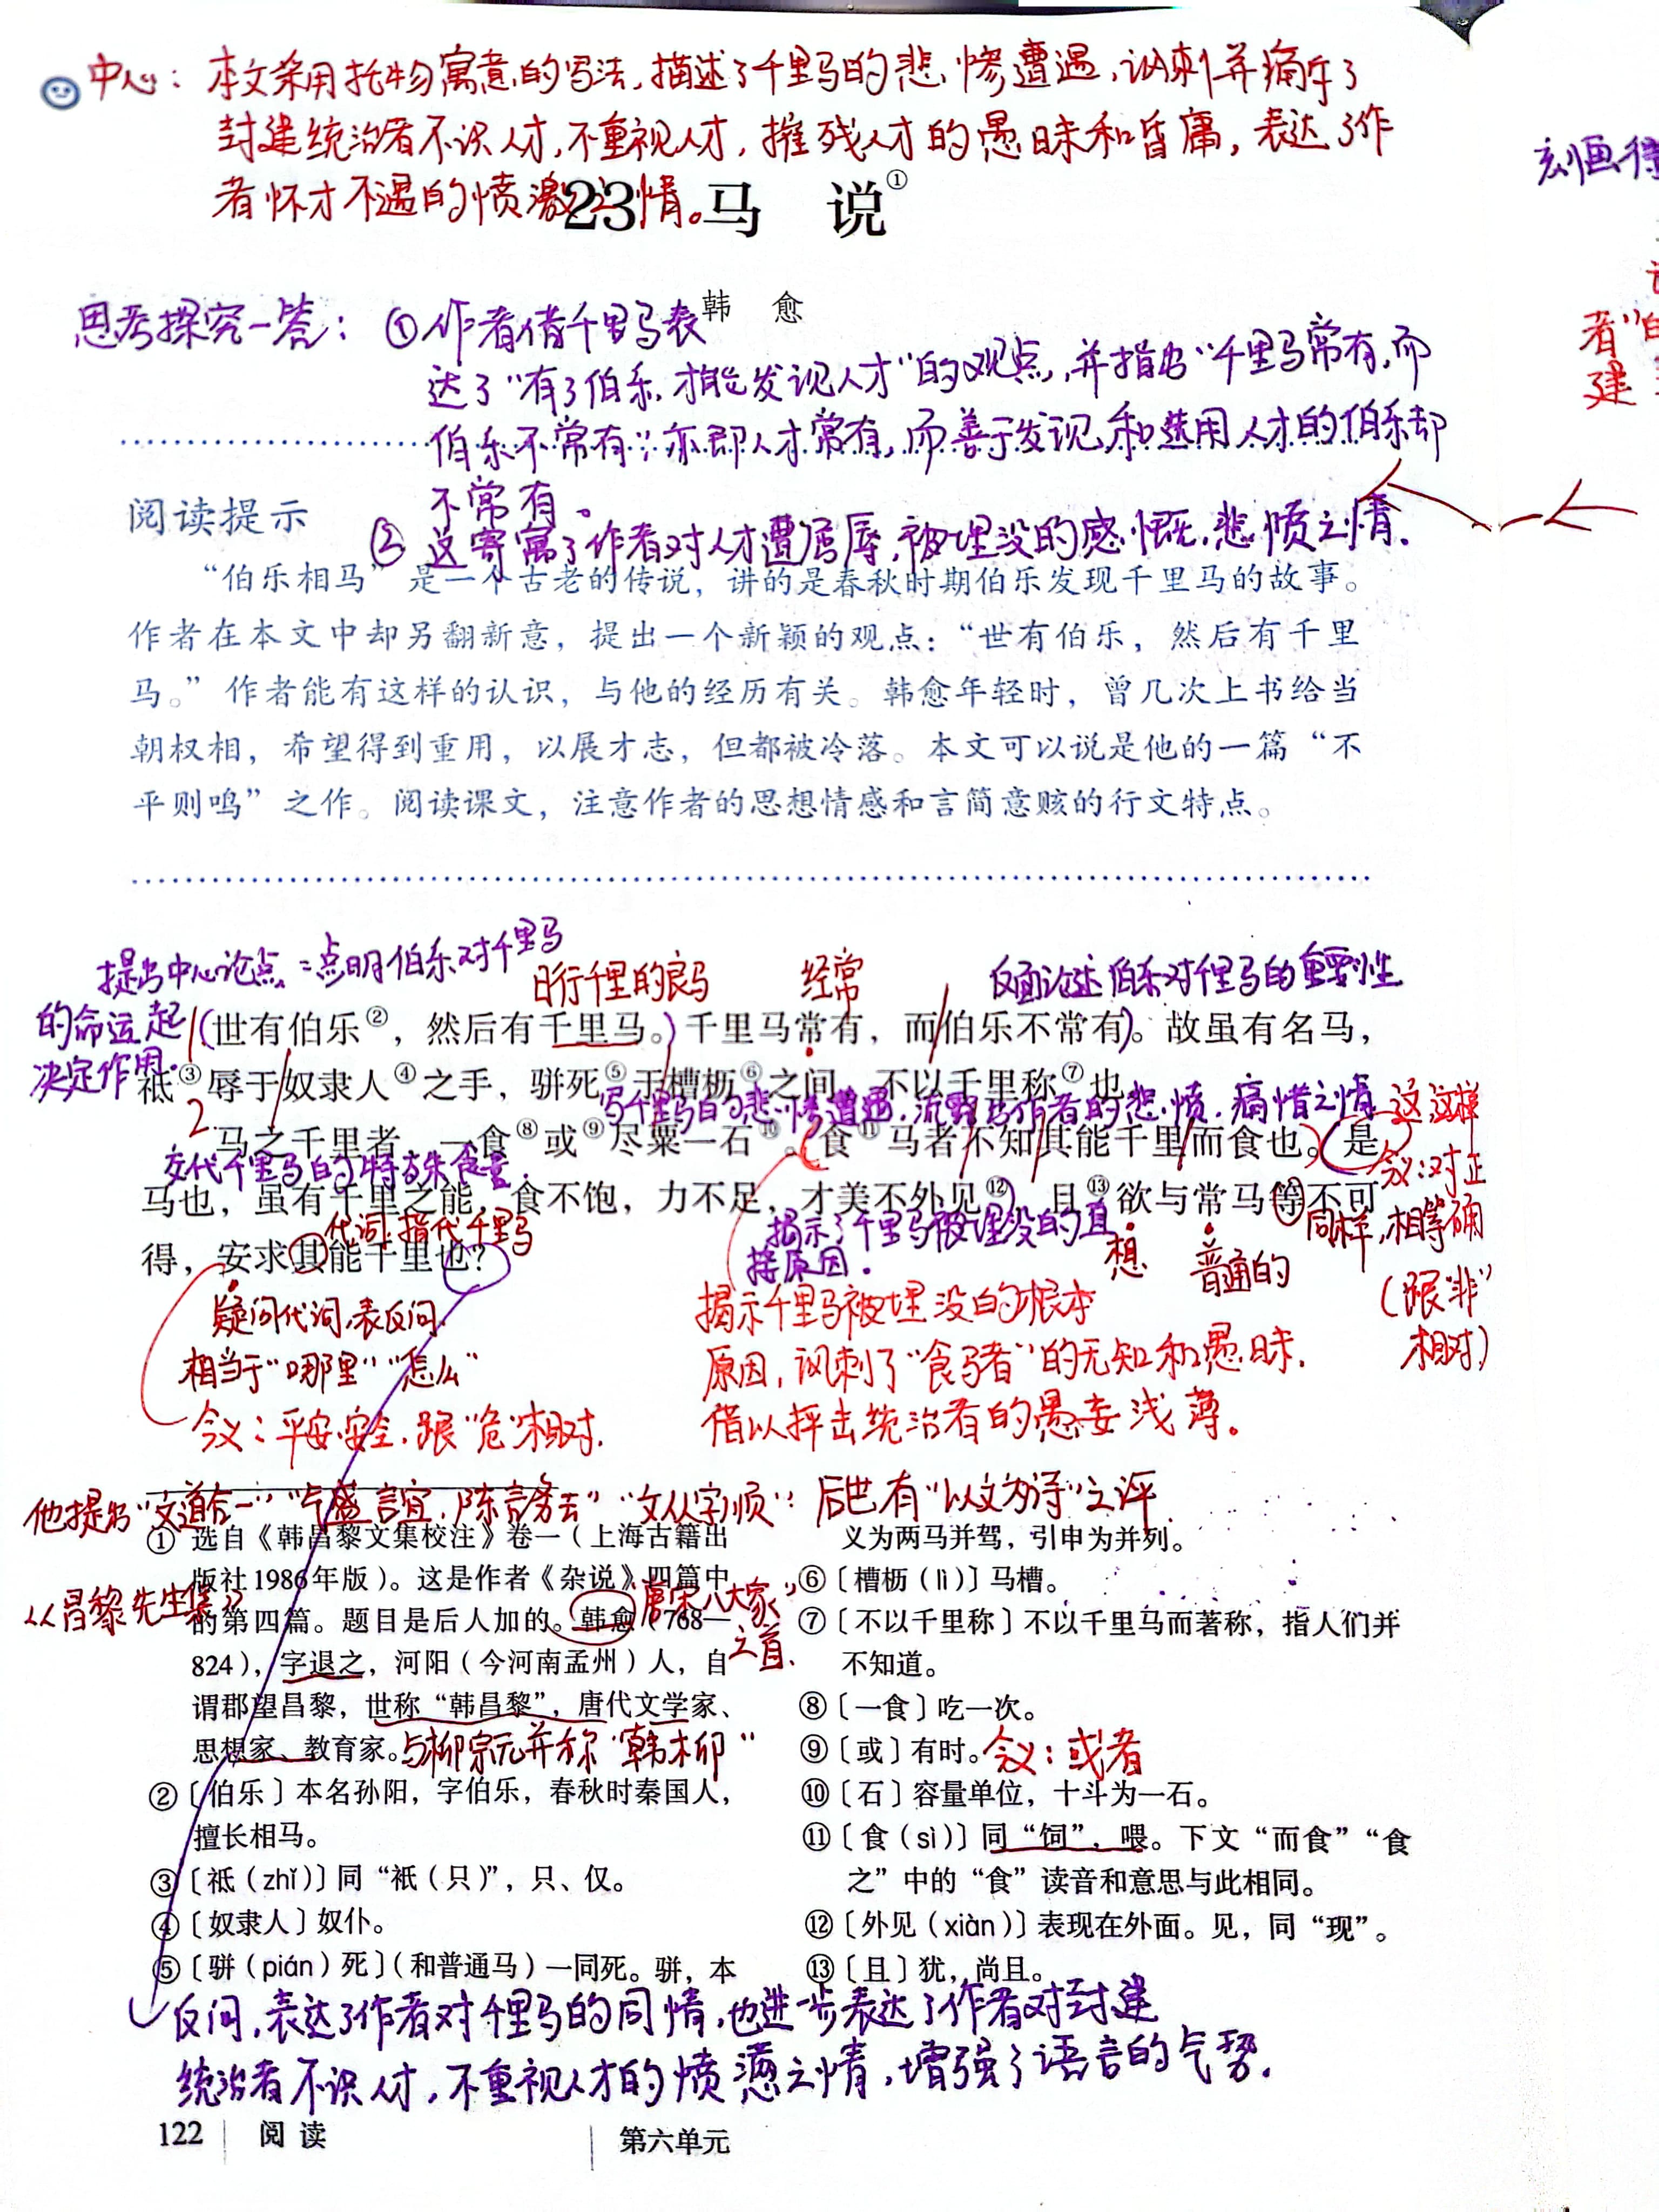 中心：本文采用托物寓意的写法，描述了千里马的悲惨遭遇，讽刺并痛斥了
封建统治者不识人才，不重视人才，摧残人才的愚昧和昏庸，表达了作
者怀才不遇的愤激之情。
23 马 说①
韩 愈
思考探究一答：①作者借千里马表
达了“有了伯乐，才能发现人才”的观点，并指出“千里马常有，而
伯乐不常有”，亦即人才常有，而善于发现和选用人才的伯乐却
不常有。
②这寄寓了作者对人才遭屈辱，被埋没的感慨，悲愤之情。
刻画得
者”的
建
阅读提示
“伯乐相马”是一个古老的传说，讲的是春秋时期伯乐发现千里马的故事。
作者在本文中却另翻新意，提出一个新颖的观点：“世有伯乐，然后有千里
马。”作者能有这样的认识，与他的经历有关。韩愈年轻时，曾几次上书给当
朝权相，希望得到重用，以展才志，但都被冷落。本文可以说是他的一篇“不
平则鸣”之作。阅读课文，注意作者的思想情感和言简意赅的行文特点。
提出中心论点：点明伯乐对千里马
的命运起
决定作用.
日行千里的良马
经常
反面论述伯乐对千里马的重要性
世有伯乐②，然后有千里马。千里马常有，而伯乐不常有。故虽有名马，
祗③辱于奴隶人④之手，骈死⑤于槽枥⑥之间，不以千里称⑦也。
写千里马的悲惨遭遇，流露出作者的悲愤，痛惜之情
2.
马之千里者，一食⑧或⑨尽粟一石⑩。食⑪马者不知其能千里而食也。是
这，这样
今义：对，正确
(跟“非”
相对)
交代千里马的特殊食量.
马也，虽有千里之能，食不饱，力不足，才美不外见⑫，且⑬欲与常马等不可
代词，指代千里马
揭示了千里马被埋没的直
接原因.
想
普通的
同样，相等
得，安求其能千里也？
疑问代词，表反问，
相当于“哪里”“怎么”
今义：平安，安全，跟“危”相对.
揭示千里马被埋没的根本
原因，讽刺了“食马者”的无知和愚昧，
借以抨击统治者的愚妄浅薄。
他提出“文道合一”“气盛言宜，陈言务去”“文从字顺”；后世有“以文为诗”之评.
《昌黎先生集》
“唐宋八大家”
之首.
① 选自《韩昌黎文集校注》卷一（上海古籍出
版社1986年版）。这是作者《杂说》四篇中
的第四篇。题目是后人加的。韩愈（768—
824），字退之，河阳（今河南孟州）人，自
谓郡望昌黎，世称“韩昌黎”，唐代文学家、
思想家、教育家。与柳宗元并称“韩柳”
②〔伯乐〕本名孙阳，字伯乐，春秋时秦国人，
擅长相马。
③〔祗（zhǐ）〕同“衹（只）”，只、仅。
④〔奴隶人〕奴仆。
⑤〔骈（pián）死〕（和普通马）一同死。骈，本
义为两马并驾，引申为并列。
⑥〔槽枥（lì）〕马槽。
⑦〔不以千里称〕不以千里马而著称，指人们并
不知道。
⑧〔一食〕吃一次。
⑨〔或〕有时。今义：或者
⑩〔石〕容量单位，十斗为一石。
⑪〔食（sì）〕同“饲”，喂。下文“而食”“食
之”中的“食”读音和意思与此相同。
⑫〔外见（xiàn）〕表现在外面。见，同“现”。
⑬〔且〕犹，尚且。
反问，表达了作者对千里马的同情，也进一步表达了作者对封建
统治者不识人才，不重视人才的愤懑之情，增强了语言的气势.
122 阅 读
第六单元